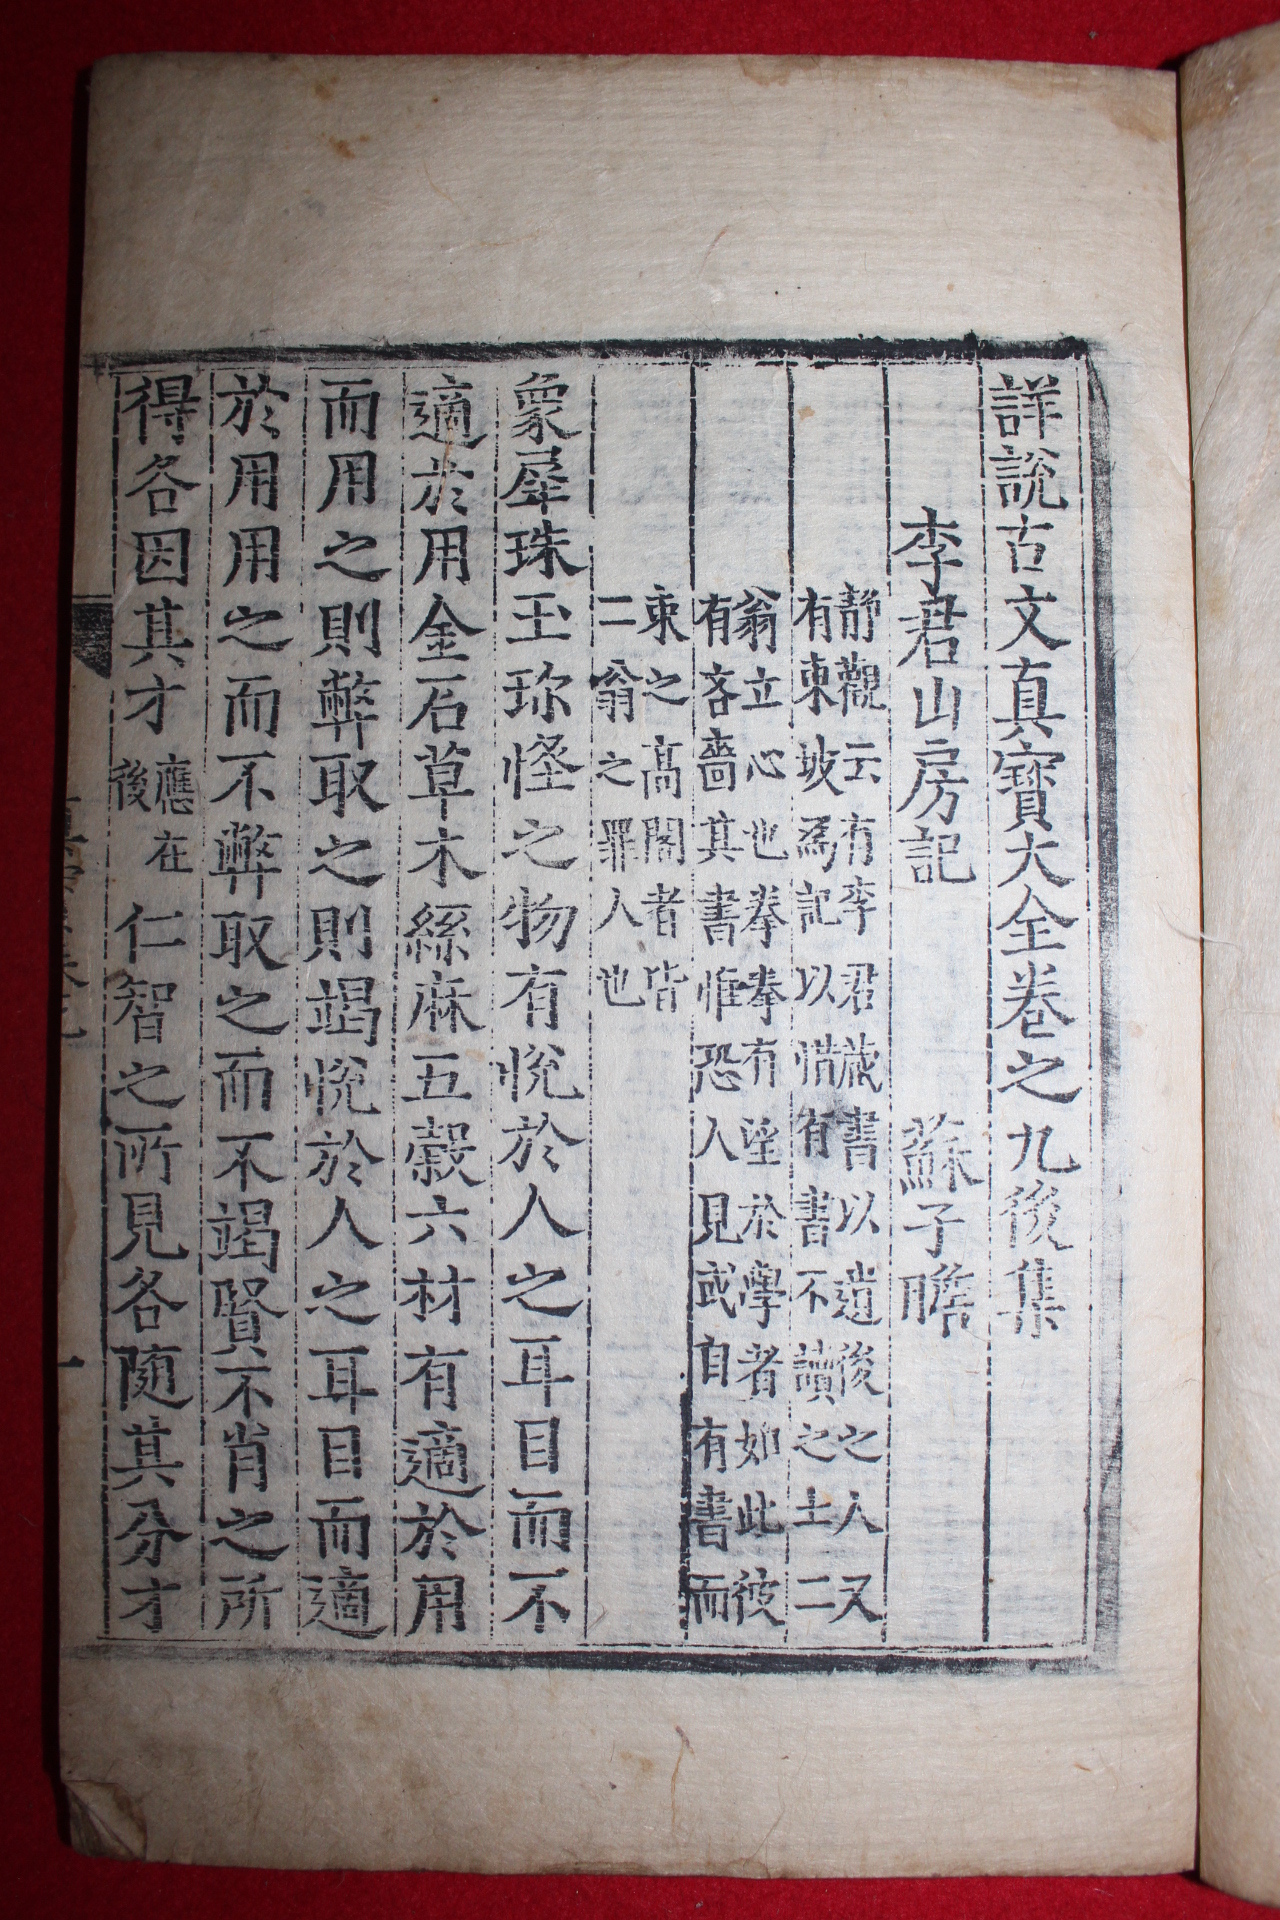 詳說古文真寶大全卷之九後集
李君山房記 蘇子瞻
靜觀云有李君藏書以遺後之人又
有東坡爲記以惜有書不讀之士二
翁立心也拳拳有望於學者如此彼
有吝嗇其書惟恐人見或自有書而
束之高閣者皆
二翁之罪人也
象犀珠玉珍怪之物有悅於人之耳目而不
適於用金石草木絲麻五穀六材有適於用
而用之則弊取之則竭悅於人之耳目而適
於用用之而不弊取之而不竭賢不肖之所
得各因其才應在後仁智之所見各隨其分才
一